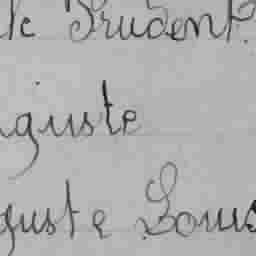 le Prudent
guste
guste Louis